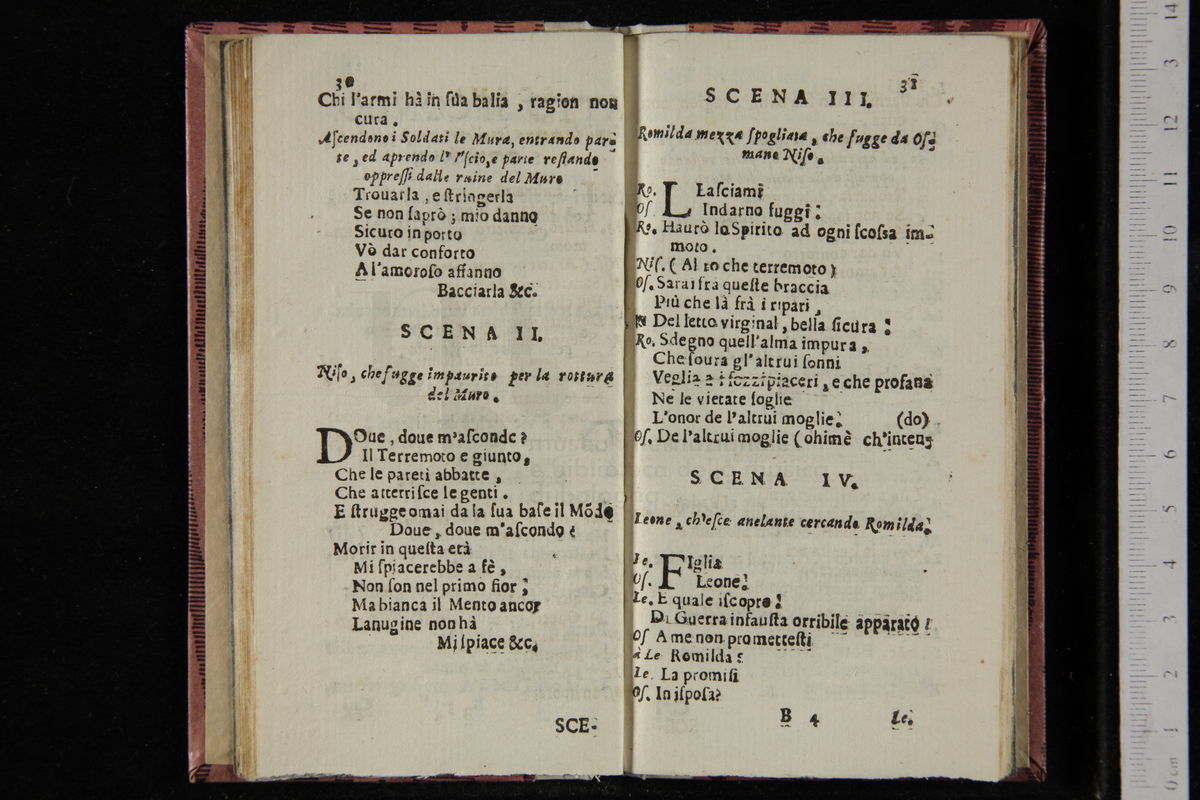 30
Chi l'armi hà in ſùa balia , ragion non
cura .
Aſcendono i Soldati le Mura, entrando par-
te , ed aprendo l' Vſcio, e parte reſtando
oppreſſi dalle ruine del Muro
Trouarla , e ſtringerla
Se non ſaprò ; mio danno
Sicuro in porto
Vò dar conforto
A l'amoroſo affanno
Bacciarla &c.
SCENA II.
Niſo , che fugge impaurito per la rottura
del Muro .
DOue , doue m'aſconde ?
Il Terremoto e giunto ,
Che le pareti abbatte ,
Che atterriſce le genti .
E ſtrugge omai da la ſua baſe il Mõdo
Doue , doue m'aſcondo ?
Morir in queſta età
Mi ſpiacerebbe a fè ,
Non ſon nel primo fior ;
Ma bianca il Mento ancor
Lanugine non hà
Mi ſpiace &c.
SCE-
31
SCENA III.
Romilda mezza ſpogliata , che fugge da Oſ-
mano Niſo .
Ro. LAſciami
Oſ. Indarno fuggi :
Ro. Haurò lo Spirito ad ogni ſcoſsa im-
moto .
Niſ. ( Al to che terremoto )
Oſ. Sarai frà queſte braccia
Più che là frà i ripari ,
Del letto virginal , bella ſicura :
Ro. Sdegno quell'alma impura ,
Che ſoura gl'altrui ſonni
Veglia a i ſozzi piaceri , e che profana
Ne le vietate ſoglie
L'onor de l'altrui moglie . (do)
Oſ. De l'altrui moglie ( ohimè ch'inten-
SCENA IV.
Leone , ch'eſce anelante cercando Romilda .
Le. FIglia
Oſ. Leone !
Le. E quale iſcopro !
Di Guerra infauſta orribile apparato !
Oſ A me non prometteſti
à Le Romilda ?
Le. La promiſi
Oſ. In iſpoſa?
B 4 Le.
0 cm 1 2 3 4 5 6 7 8 9 10 11 12 3 14